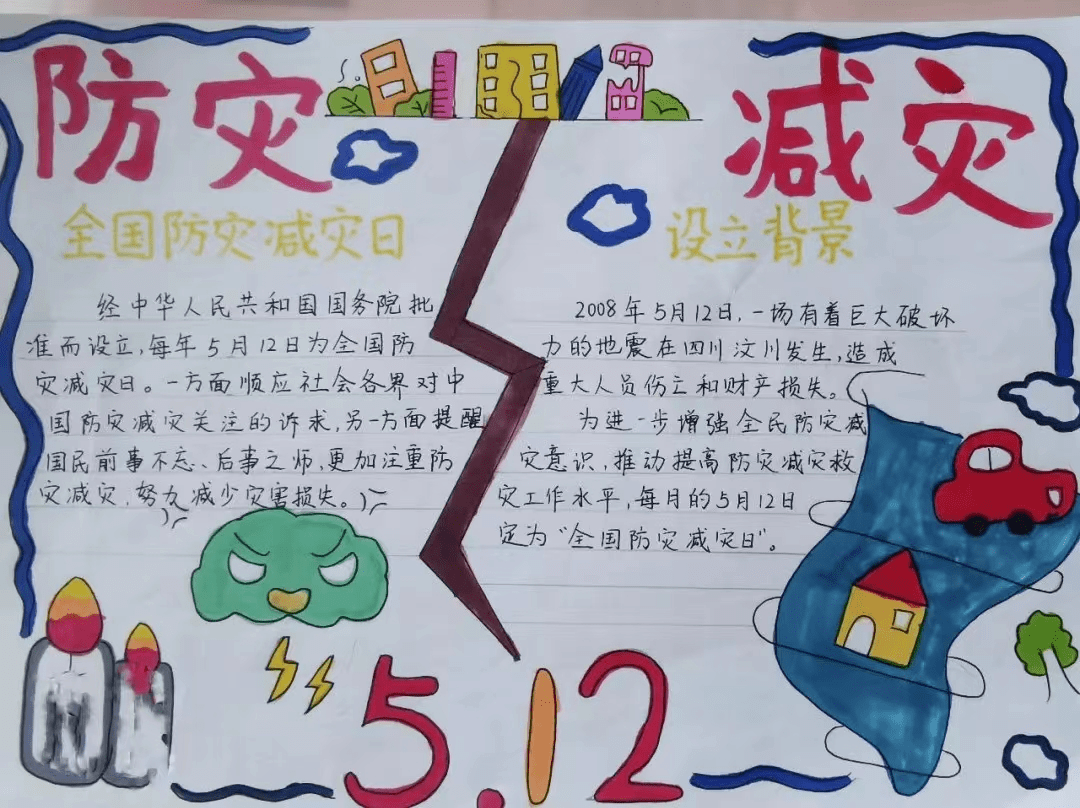 防灾
减灾
全国防灾减灾日
经中华人民共和国国务院批
准而设立,每年5月12日为全国防
灾减灾日。一方面顺应社会各界对中
国防灾减灾关注的诉求,另一方面提醒
国民前事不忘、后事之师,更加注重防
灾减灾,努力减少灾害损失。
设立背景
2008年5月12日,一场有着巨大破坏
力的地震在四川汶川发生,造成
重大人员伤亡和财产损失。
为进一步增强全民防灾减
灾意识,推动提高防灾减灾救
灾工作水平,每月的5月12日
定为“全国防灾减灾日”。
5.12